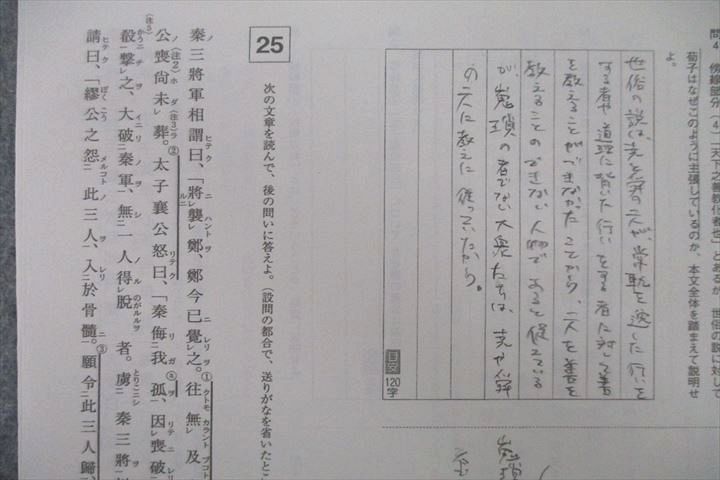 問4 傍線部分(4)「天下之善教化者也」とあるが、世俗の説に対して
荀子はなぜこのように主張しているのか、本文全体を踏まえて説明せ
よ。
世俗の説は、堯と舜の二人が、常軌を逸した行いを
する者や道理に背いた行いをする者に対して善
を教えることができなかったことから、二人を善を
教えることのできない人物であると捉えている
が、嵬瑣の者でない大衆たちは、堯や舜
の二人に教えに従っていたから。
目安
120字
嵬瑣
25
次の文章を読んで、後の問いに答えよ。(設問の都合で、送りがなを省いたとこ
秦三將軍相謂曰、「將襲鄭、鄭今已覺之。①往無及
公喪尚未葬。太子襄公怒曰、「秦侮我孤、因喪破
殽撃之、大破秦軍、無一人得脱者。虜秦三將
請曰、「繆公之怨此三人、入於骨髓。願令此三人歸、